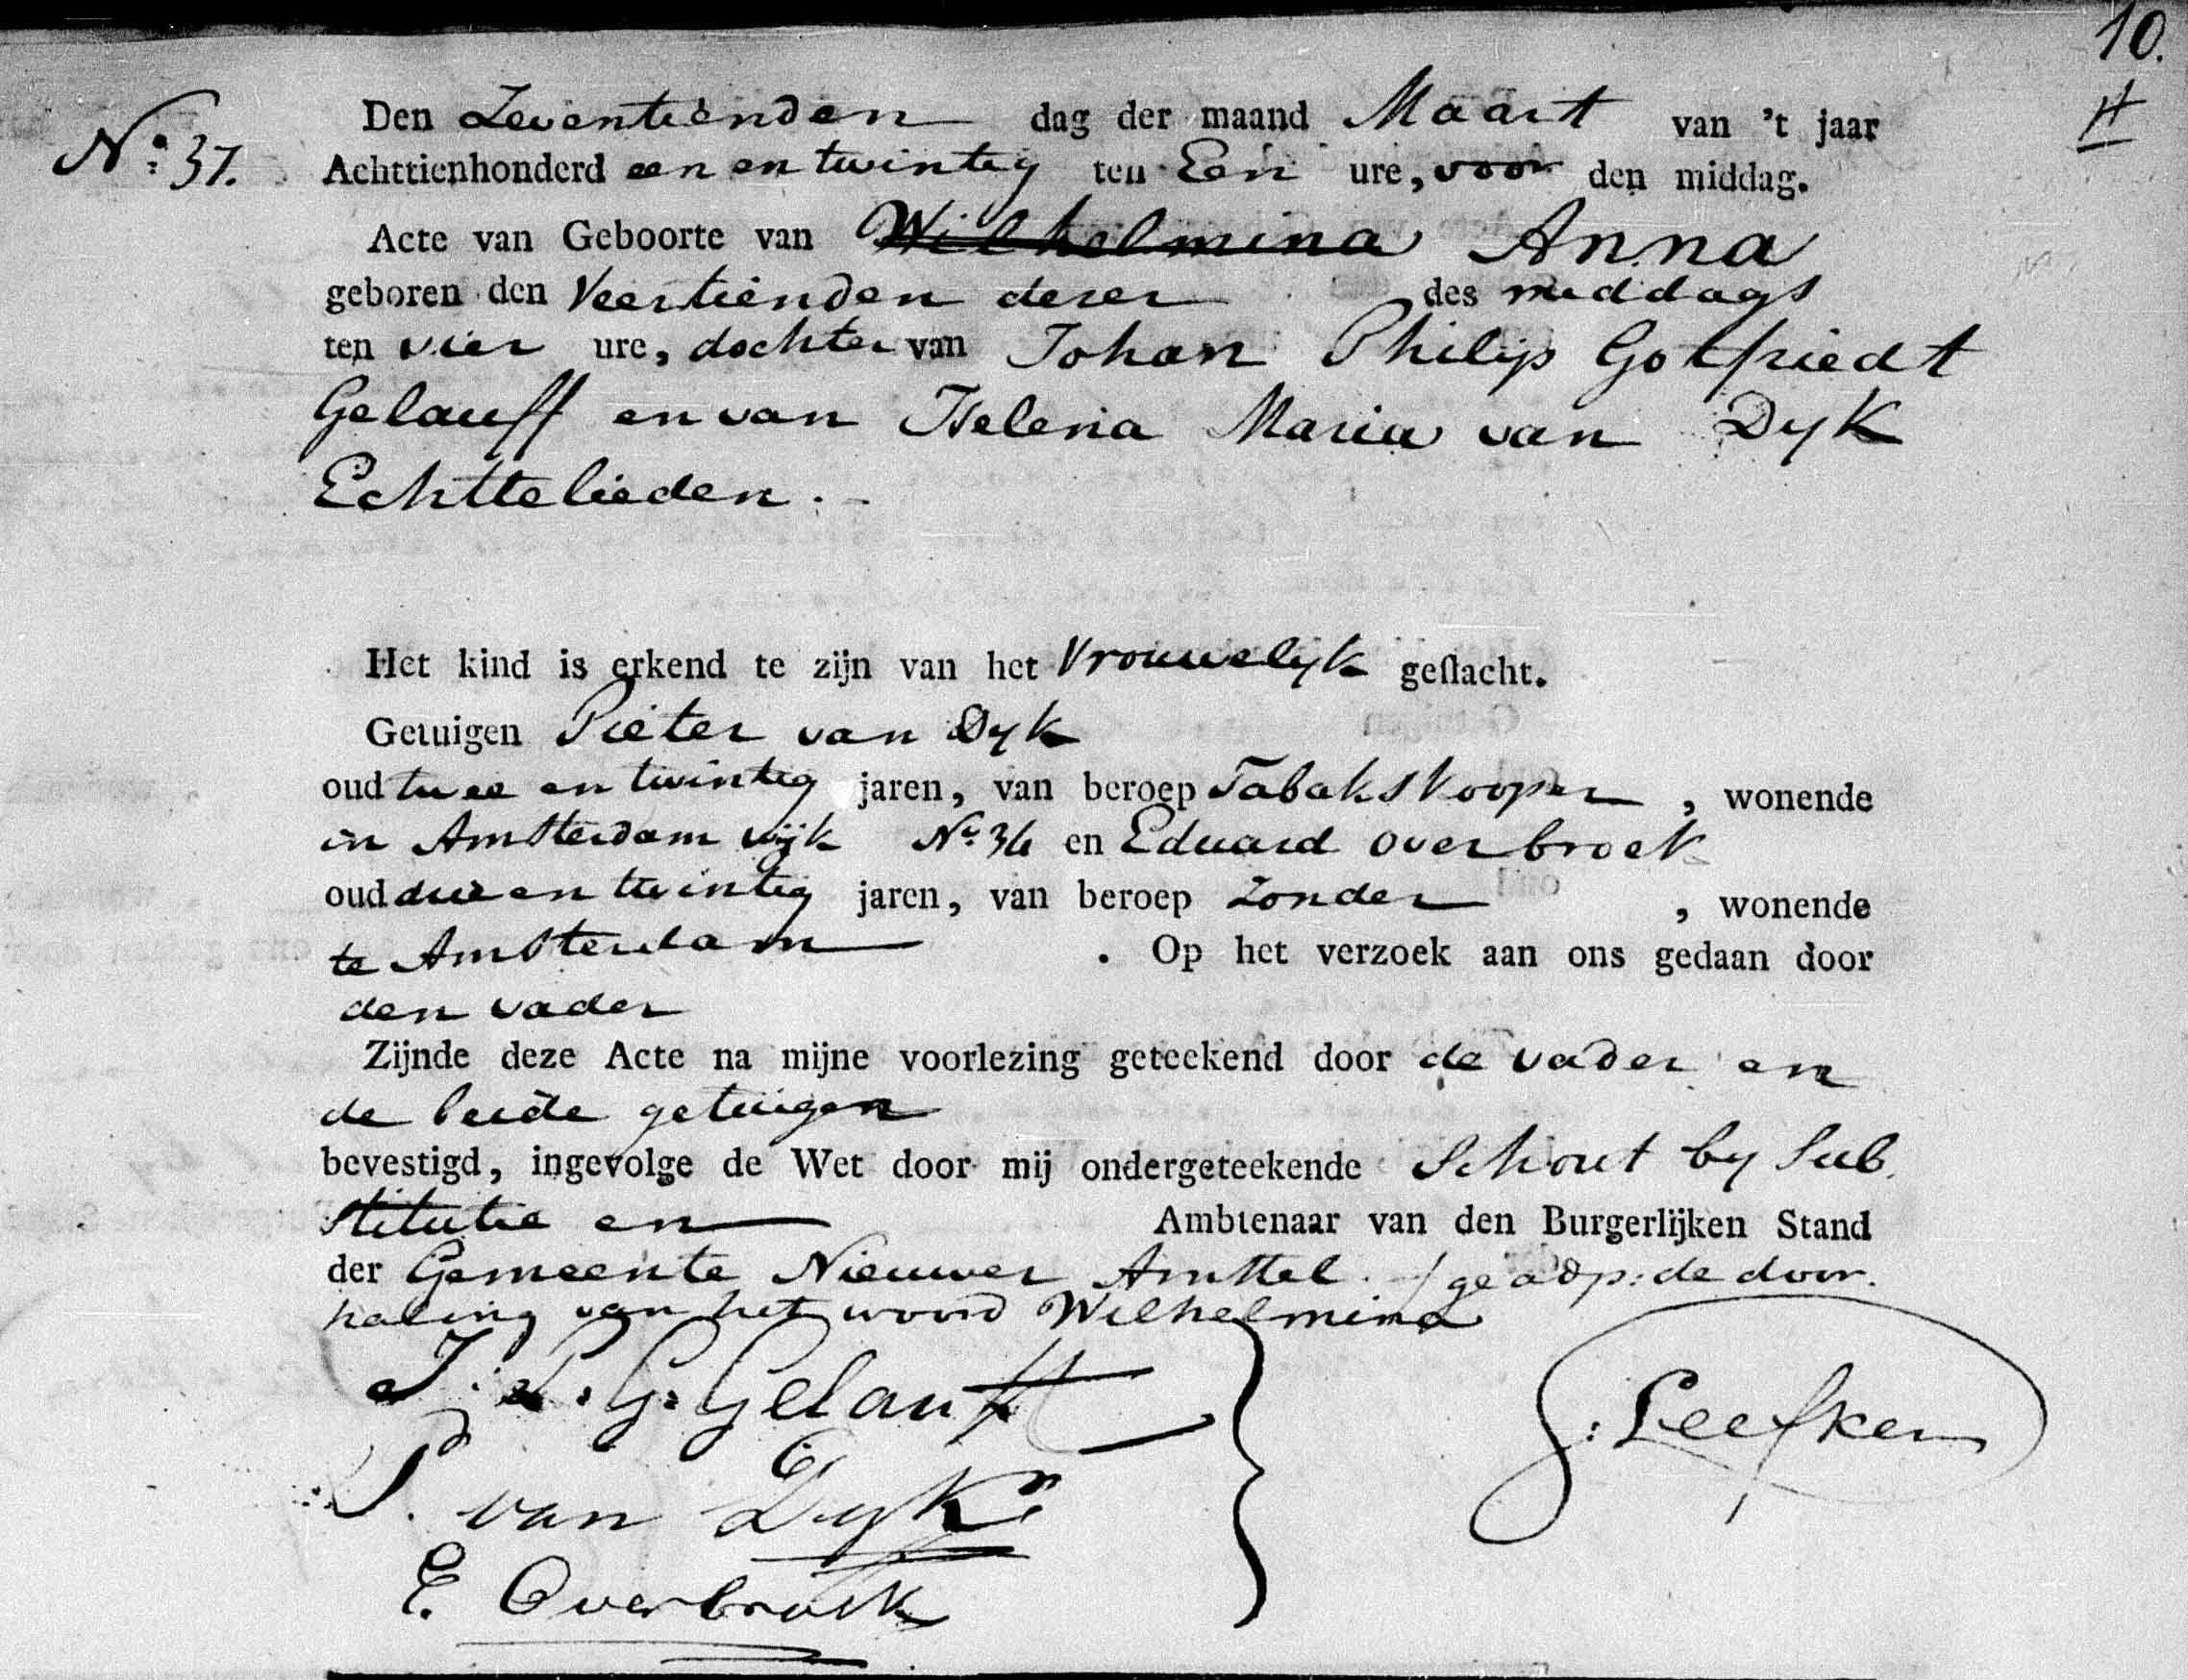 10.
No. 37.
Den Zeventienden dag der maand Maart van 't jaar
Achttienhonderd een en twintig ten Een ure, voor den middag.
Acte van Geboorte van Wilhelmina Anna
geboren den Veertienden dezer des middags
ten vier ure, dochter van Johan Philip Gotfriedt
Gelauff en van Helena Maria van Dyk
Echttelieden.
Het kind is erkend te zijn van het Vrouwelyk geslacht.
Getuigen Pieter van Dyk
oud twee en twintig jaren, van beroep Tabakskooper, wonende
in Amsterdam wijk No. 36 en Eduard overbroek
oud drie en twintig jaren, van beroep Zonder, wonende
te Amsterdam. Op het verzoek aan ons gedaan door
den vader
Zijnde deze Acte na mijne voorlezing geteekend door de vader en
de beide getuigen
bevestigd, ingevolge de Wet door mij ondergeteekende Schout by Sub
stitutie en Ambtenaar van den Burgerlijken Stand
der Gemeente Nieuwer Amstel. / geadp: de door
haling van het woord Wilhelmina
J. P. G. Gelauff
P. van Dyk
E. Overbroek
Leefken